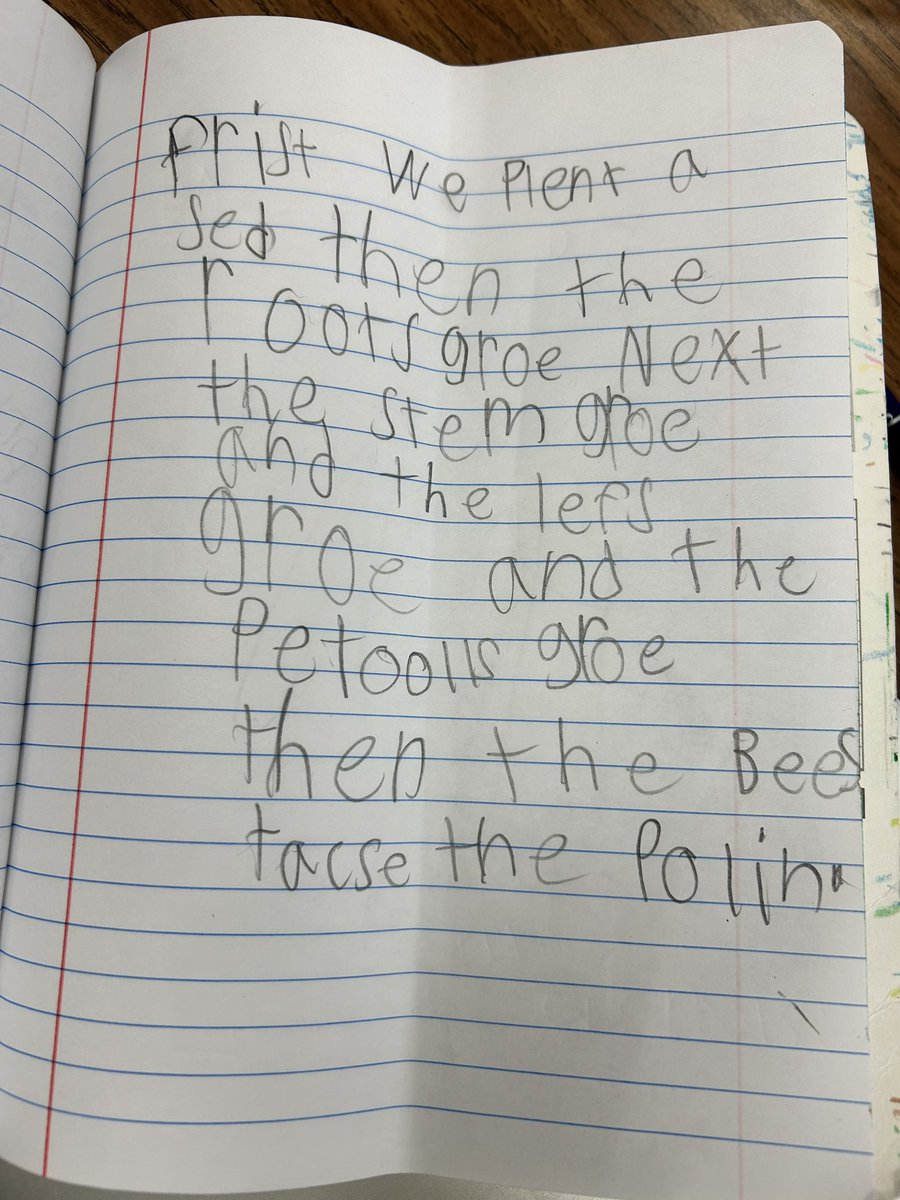 frist We Plent a
sed then the
roots groe Next
the stem groe
and the lefs
groe and the
Petoolls groe
then the Bees
tacse the Polin